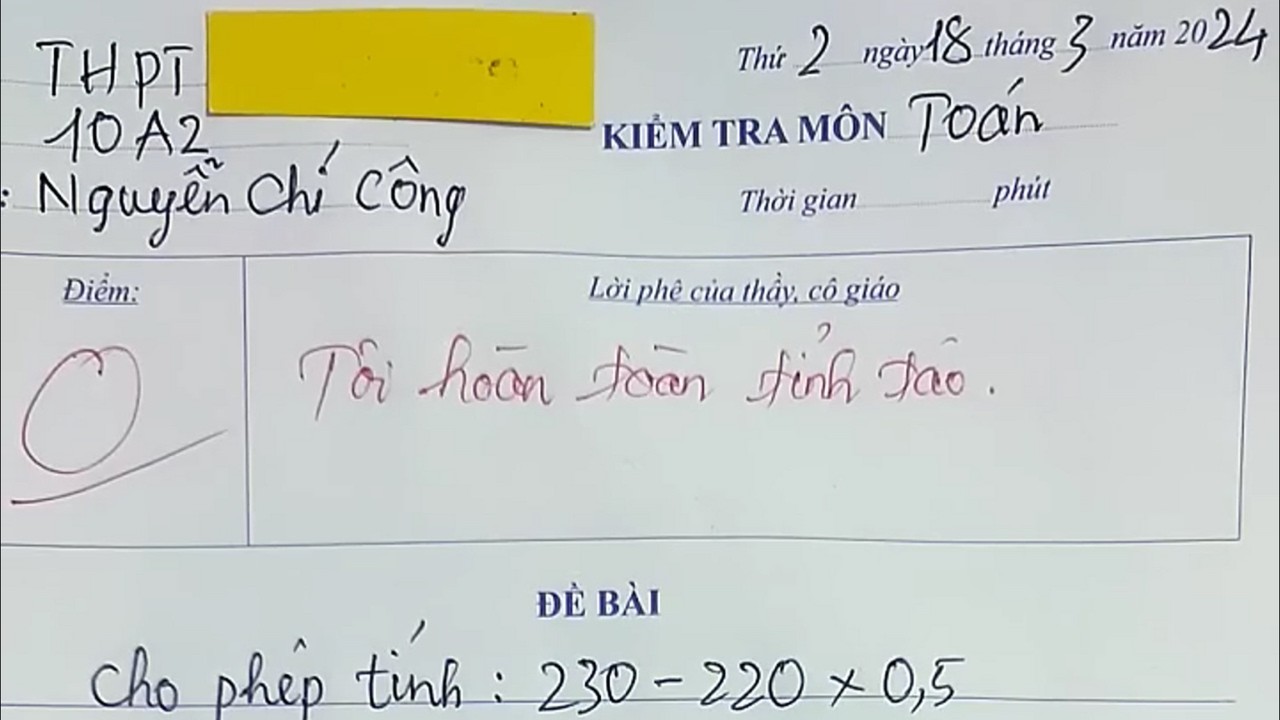 THPT
Thứ 2 ngày 18 tháng 3 năm 2024
10A2
KIỂM TRA MÔN Toán
: Nguyễn Chí Công
Thời gian phút
Điểm:
Lời phê của thầy, cô giáo
0
Tôi hoàn toàn tỉnh táo.
ĐỀ BÀI
Cho phép tính : 230 - 220 x 0,5